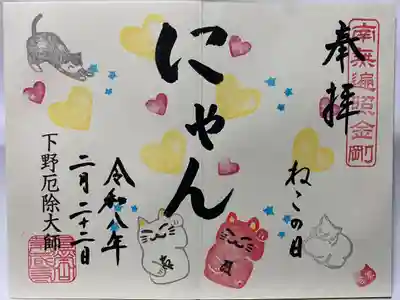 南無遍照金剛
奉拝
ねこの日
にゃん
令和八年
二月二十二日
下野厄除大師